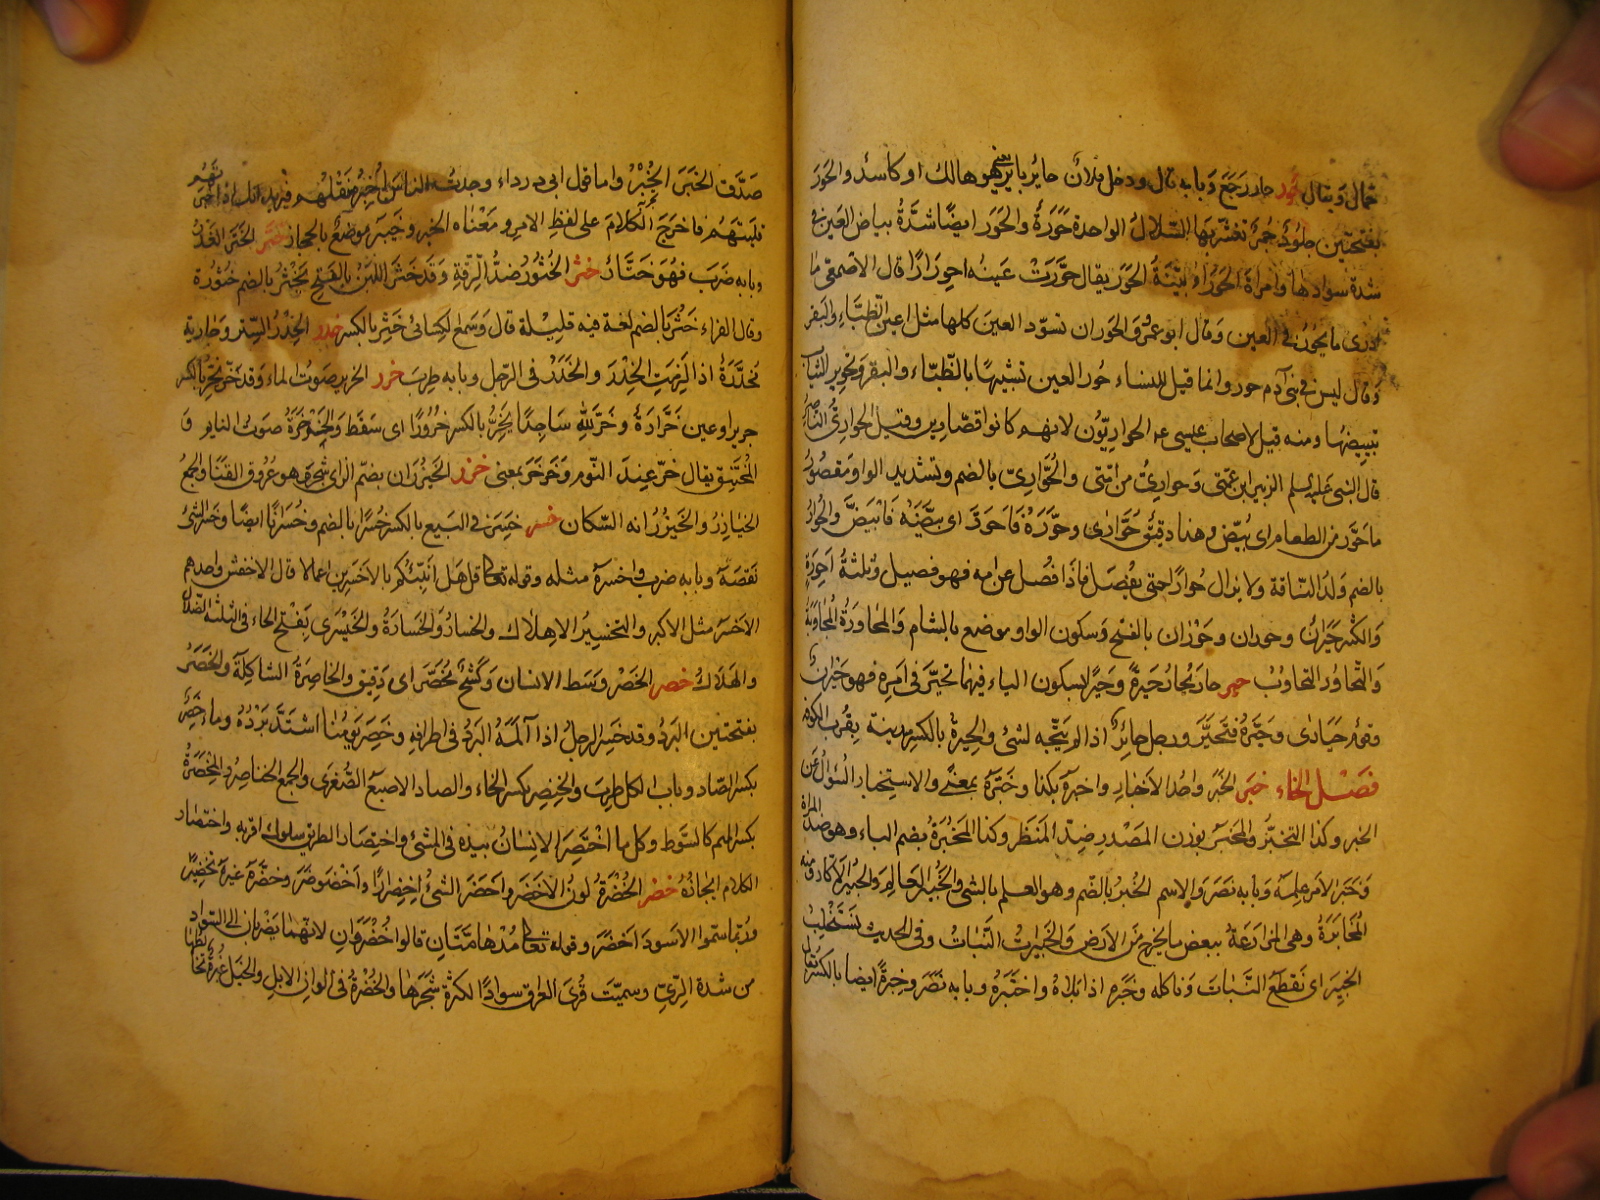 شمال ويقال حور حار رجع وبابه قال ودخل فلان حاير باير هو هالك او كاسد والحور
بفتحتين جلود حمر تغشي بها السلال الواحدة حورة والحور ايضا شدة بياض العين في
شدة سوادها وامراة الحوراء بينة الحور يقال حورت عينه احورارا قال الاصمعي ما
ادرى ما الحور في العين وقال ابو عمرو الحور ان تسود العين كلها مثل اعين الظباء والبقر
وقال ليس في بنى آدم حور وانما قيل للنساء حور العين تشبيها بالظباء والبقر وتحوير الثياب
تبييضها ومنه قيل لاصحاب عيسى الحواريون لانهم كانوا قصارين وقيل الحوارى الناصر
قال النبى عليه السلم الزبير ابن عمتى وحوارى من امتى والحوارى بالضم وتشديد الواو مقصور
ما حور من الطعام اى بيض وهذا دقيق حوارى وحوره فاحور اى بيضه فابيض والحوار
بالضم ولد الناقة ولا يزال حوارا حتى يفصل فاذا فصل عن امه فهو فصيل وثلثة احورة
والكثير حيران وحوران وحوران بالفتح وسكون الواو موضع بالشام والمحاورة المجاوبة
والتحاور التجاوب حير حار يحار حيرة وحيرا بسكون الياء فيهما تحير فى امره فهو حيران
وقوم حيارى وحيره فتحير ورجل حائر اذا لم يتجه لشئ والحيرة بالكسر مدينة بقرب الكوفة
فصل الخاء خبر الخبر واحد الاخبار واخبره بكذا وخبره بمعنى والاستخبار السؤال عن
الخبر وكذا التخبر والمخبر بوزن المصدر ضد المنظر وكذا المخبرة بضم الباء وهو ضد المراة
وخبر الامر علمه وبابه نصر والاسم الخبر بالضم وهو العلم بالشئ والخبير العالم والخبير الاكار ومنه
المخابرة وهى المزارعة ببعض ما يخرج من الارض والخبير النبات وفى الحديث نستخلب
الخبير اى نقطع النبات وناكله وخبره اذا بلاه واختبره وبابه نصر وخبرة ايضا بالكسر يقال
صدق الخبر الخبر واما قول ابى درداء وجدت الناس اخبر تقلهم فيريد انك اذا خبرتهم
قليتهم فاخرج الكلام على لفظ الامر ومعناه الخبر وخيبر موضع بالحجاز ختر الختر الغدر
وبابه ضرب فهو ختار خثر الخثور ضد الرقة وقد خثر اللبن بالفتح يخثر بالضم خثورة
وقال الفراء خثر بالضم لغة فيه قليلة قال وسمع الكسائى خثر بالكسر خدر الخدر الستر وجارية
مخدرة اذا لزمت الخدر والخدر فى الرجل وبابه طرب خرر الخرير صوت الماء وقد خر يخر بالكسر
خريرا وعين خرارة وخر لله ساجدا يخر بالكسر خرورا اى سقط والخرخرة صوت النايم و
المختنق يقال خر عند النوم وخرخر بمعنى خزر الخيزران بضم الزاى شجرة وهو عروق القنا والجمع
الخيازر والخيزرانه السكان خسر خسر فى البيع بالكسر خسرا بالضم وخسرانا ايضا وخسر الشئ
نقصه وبابه ضرب واخسره مثله وقوله تعالى قل هل انبئكم بالاخسرين اعمالا قال الاخفش واحدهم
الاخسر مثل الاكبر والتخسير الاهلاك والخسار والخسارة والخيسرى بفتح الخاء فى الثلثة الضلال
والهلاك خصر الخصر وسط الانسان وكشح مخصر اى دقيق والخاصرة الشاكلة والخصر
بفتحتين البرد وقد خصر الرجل اذا آلمه البرد فى اطرافه وخصر يومنا اشتد برده وماء خصر
بكسر الصاد وباب الكل طرب والخنصر بكسر الخاء والصاد الاصبع الصغرى والجمع الخناصر والمخصرة
بكسر الميم كالسوط وكل ما اختصر الانسان بيده فى المشى واختصار الطريق سلوك اقربه واختصار
الكلام ايجازه خضر الخضرة لون الاخضر واخضر الشئ اخضرارا واخضوضر وخضره غيره تخضيرا
وربما سموا الاسود اخضر وقوله تعالى مدهامتان قالوا خضراوان لانهما يضربان الى السواد
من شدة الرى وسميت قرى العراق سوادا لكثرة شجرها والخضرة فى الوان الابل والخيل غبرة